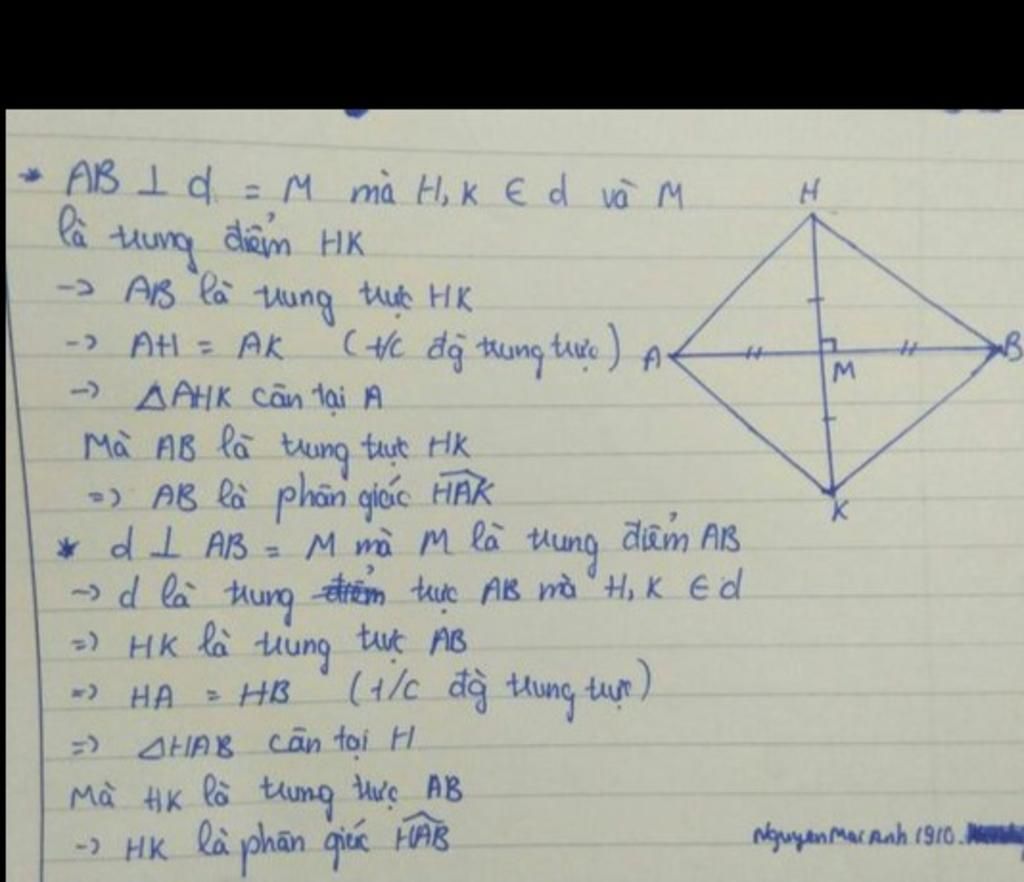 * AB ⊥ d = M mà H, K ∈ d và M
là trung điểm HK
-> AB là trung trực HK
-> AH = AK (t/c đg trung trực)
-> ΔAHK cân tại A
Mà AB là trung trực HK
=> AB là phân giác \widehat{HAK}
* d ⊥ AB = M mà M là trung điểm AB
-> d là trung điểm trực AB mà H, K ∈ d
=> HK là trung trực AB
=> HA = HB (t/c đg trung trực)
=> ΔHAB cân tại H
Mà HK là trung trực AB
-> HK là phân giác \widehat{HAB}
H
A
M
B
K
Nguyen Mai Anh 1910.